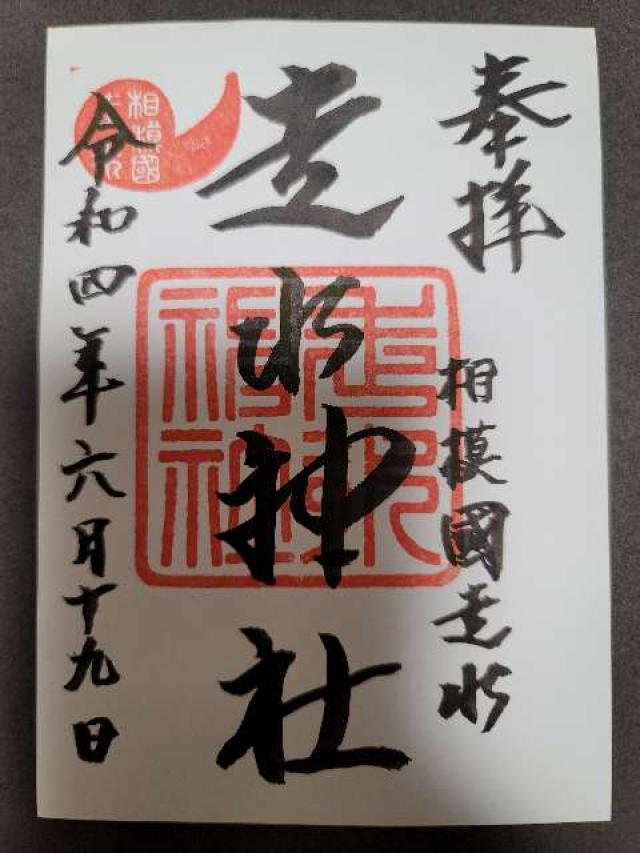 奉拝
相模國走水
走水神社
令和四年六月十九日
相模國
走水神社